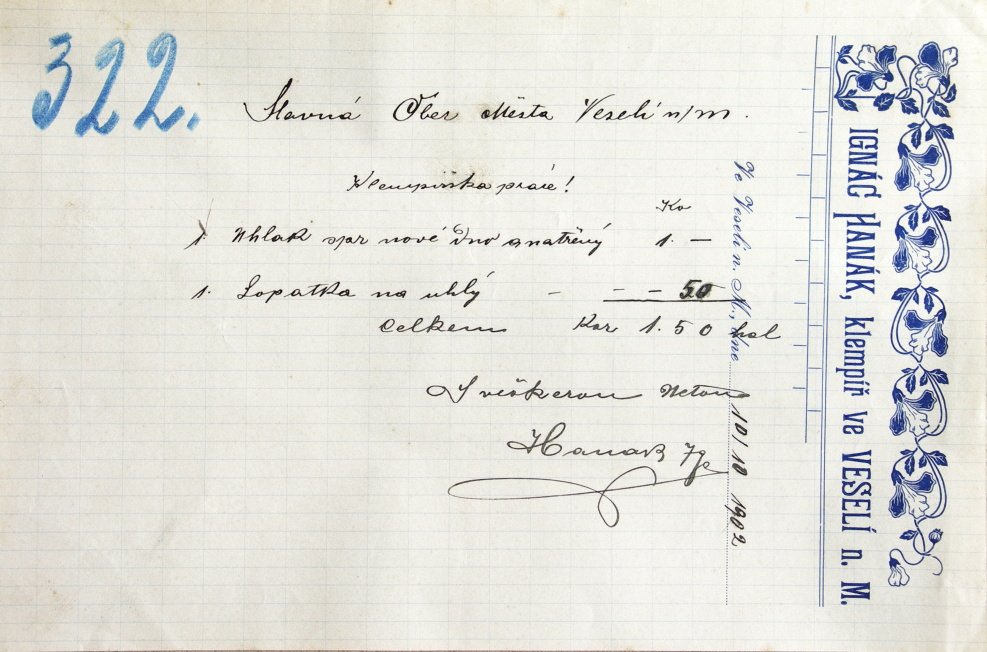 322.
IGNÁC HANÁK, klempíř ve VESELÍ n. M.
Ve Veselí n. M., dne 10/10 1902
Slavná Obec Města Veselí n/m.
Klempířska práce!
Ko
1. Uhlak spr nové dno a natřený 1. —
1. Lopatka na uhlý - - - 50
Celkem Kor 1.50 hal
Hanak Ig